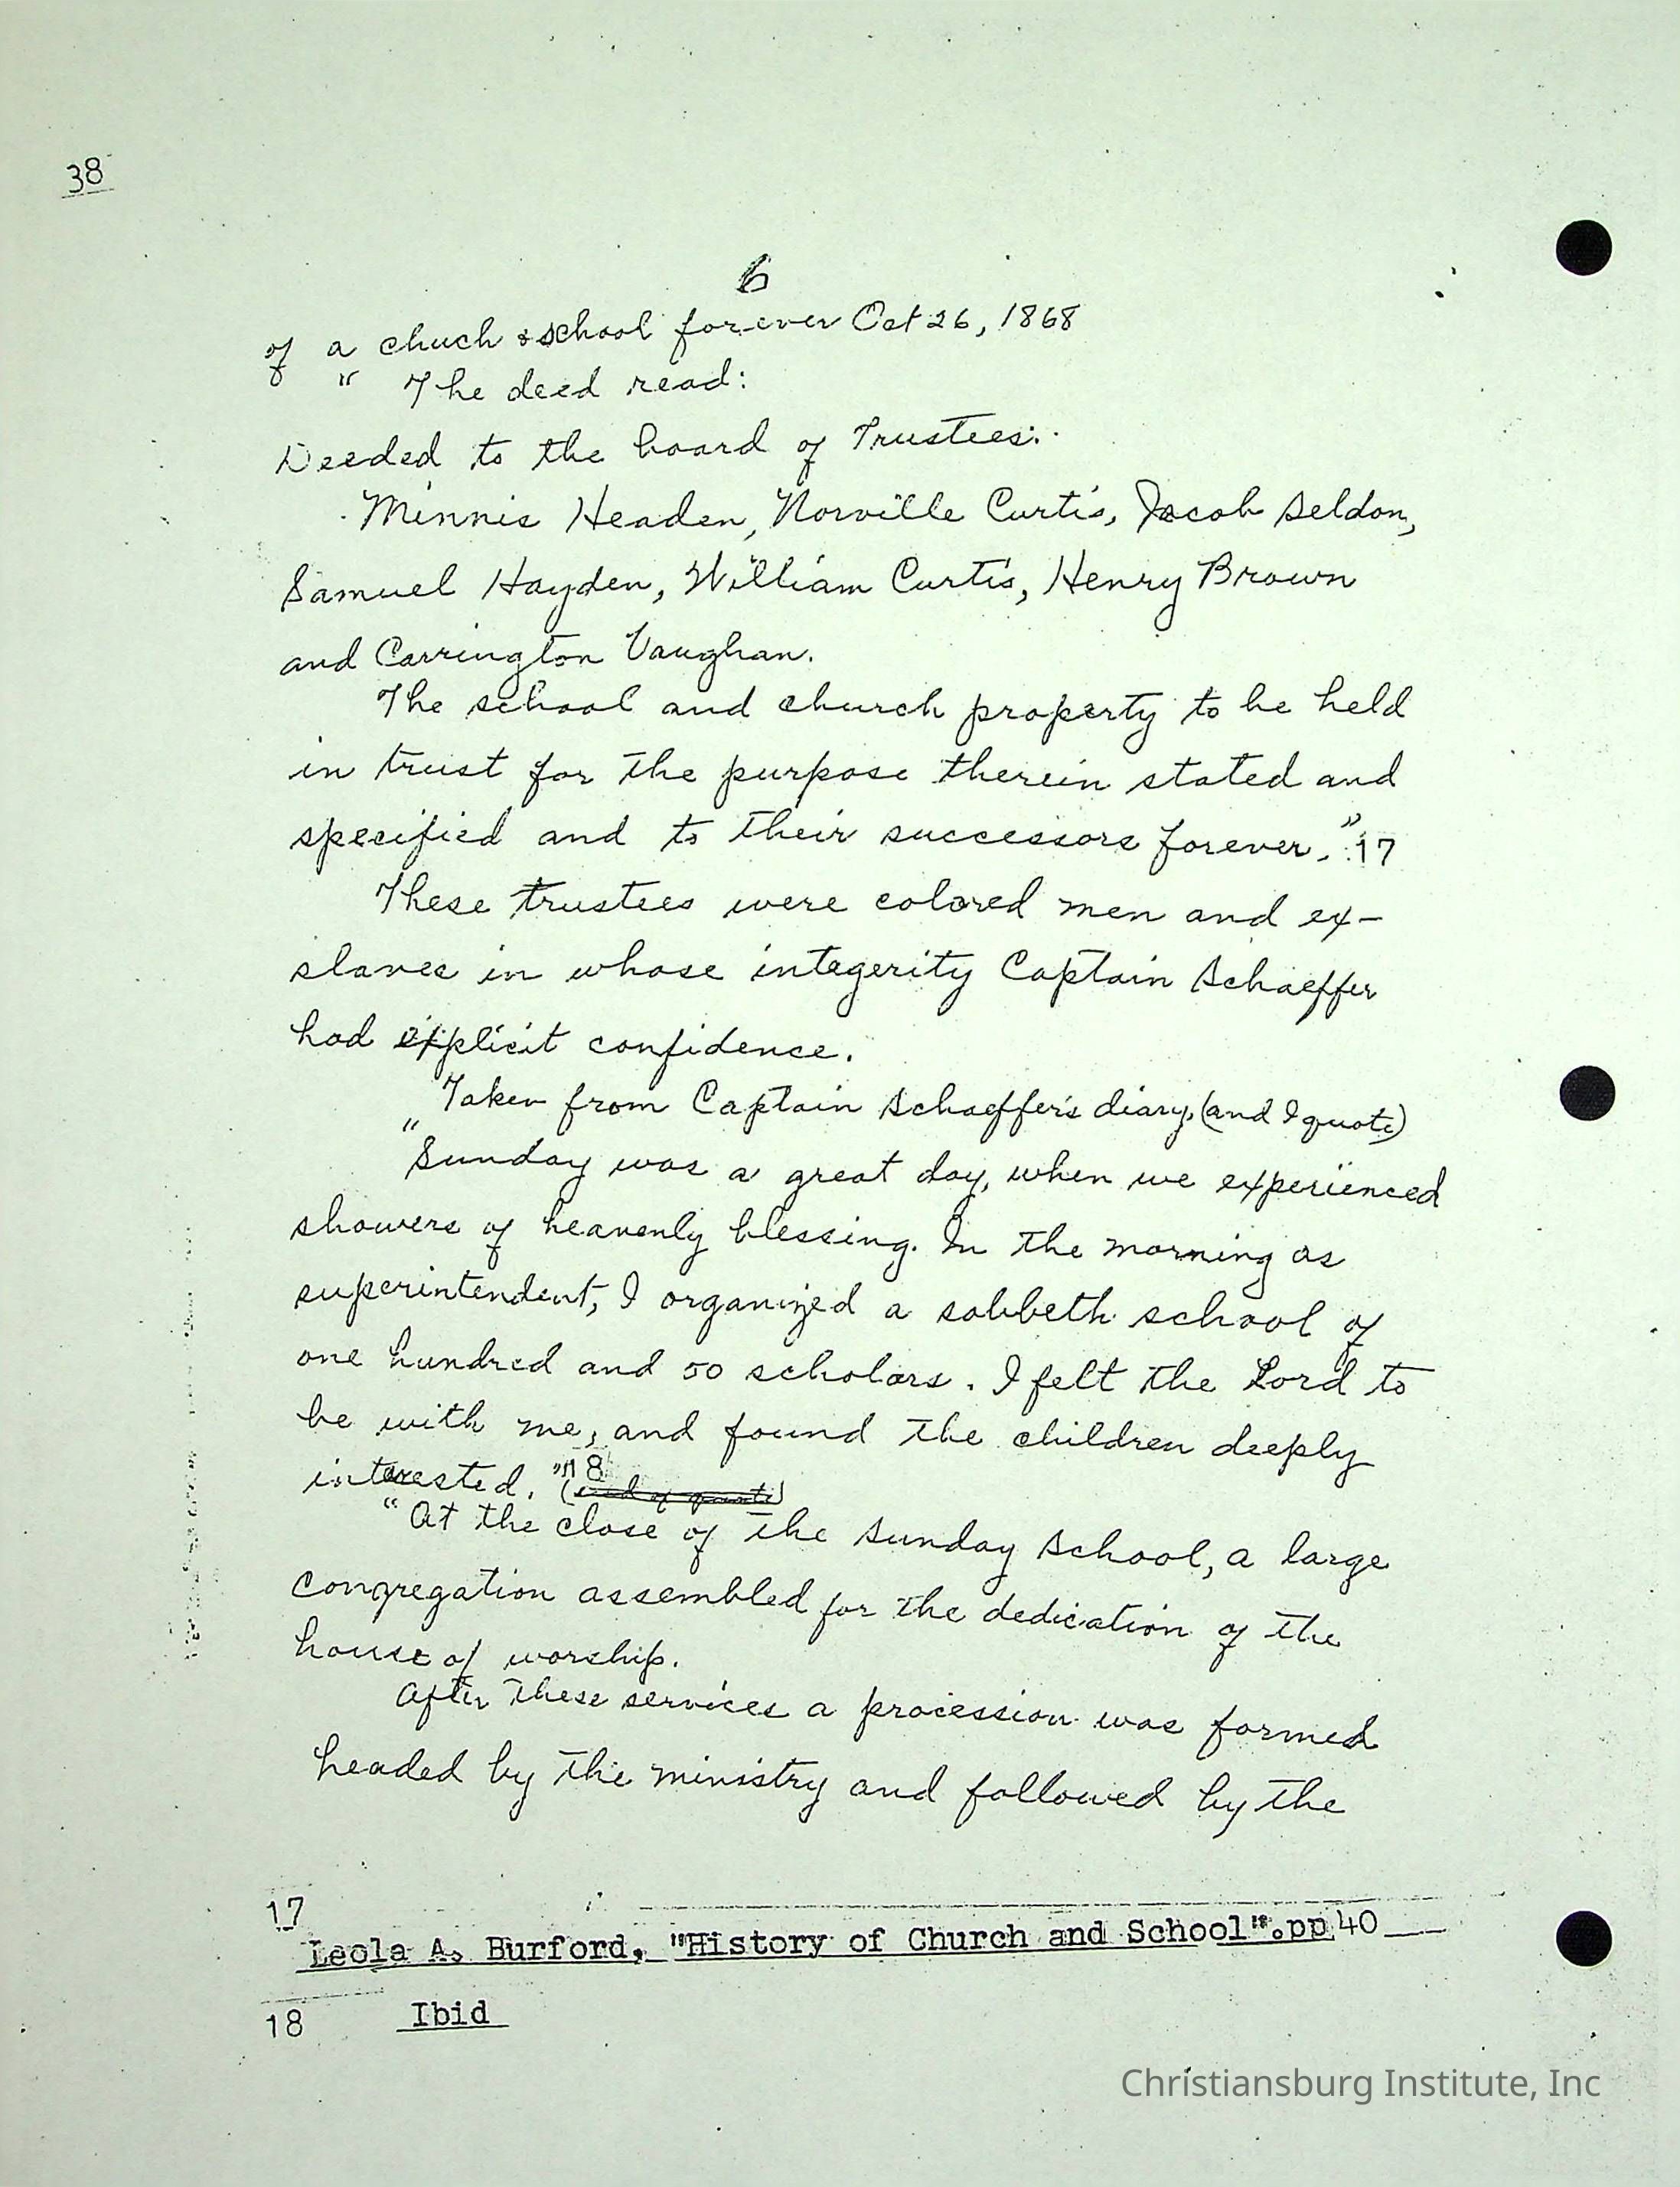 38
6
of a chuch & school forever Oct 26, 1868
" The deed read:
Deeded to the board of Trustees:
Minnis Headen, Norville Curtis, Jacob Seldon,
Samuel Hayden, William Curtis, Henry Brown
and Carrington Vaughan.
The school and church property to be held
in trust for the purpose therein stated and
specified and to their successors forever." 17
These trustees were colored men and ex-
slaves in whose integerity Captain Schaeffer
had explicit confidence.
Taken from Captain Schaeffer's diary, (and I quote)
"Sunday was a great day, when we experienced
showers of heavenly blessing. In the morning as
superintendent, I organized a sabbeth school of
one hundred and 50 scholars. I felt the Lord to
be with me, and found the children deeply
interested." 18 (end of quote)
"At the close of the Sunday School, a large
congregation assembled for the dedication of the
house of worship.
After these services a procession was formed
headed by the ministry and followed by the
17
Leola A. Burford, "History of Church and School".pp 40
18 Ibid
Christiansburg Institute, Inc